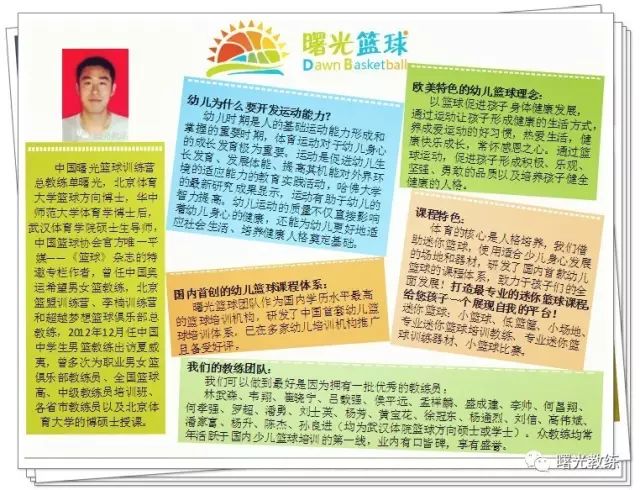 曙光篮球
Dawn Basketball
中国曙光篮球训练营
总教练单曙光，北京体育
大学篮球方向博士，华中
师范大学体育学博士后，
武汉体育学院硕士生导师，
中国篮球协会官方唯一平
媒——《篮球》杂志的特
邀专栏作者，曾任中国奥
运希望男女篮教练，北京
篮盟训练营、李楠训练营
和超越梦想篮球俱乐部总
教练，2012年12月任中国
中学生男篮教练出访夏威
夷，曾多次为职业男女篮
俱乐部教练员、全国篮球
高、中级教练员培训班、
各省市教练员以及北京体
育大学的博硕士授课。
幼儿为什么要开发运动能力？
幼儿时期是人的基础运动能力形成和
掌握的重要时期，体育运动对于幼儿身心
的成长发育极为重要。运动是促进幼儿生
长发育、发展体能、提高其机能对外界环
境的适应能力的教育实践活动，哈佛大学
的最新研究成果显示，运动有助于幼儿的
智力提高。幼儿运动的质量不仅直接影响
着幼儿身心的健康，还能为幼儿更好地适
应社会生活、培养健康人格奠定基础。
欧美特色的幼儿篮球理念：
以篮球促进孩子身体健康发展，
通过运动让孩子形成健康的生活方式，
养成爱运动的好习惯，热爱生活，健
康快乐成长，常怀感恩之心。通过篮
球运动，促进孩子形成积极、乐观、
坚强、勇敢的品质以及培养孩子健全
健康的人格。
国内首创的幼儿篮球课程体系：
曙光篮球团队作为国内学历水平最高
的篮球培训机构，研发了中国首套幼儿篮
球培训体系，已在多家幼儿培训机构推广
且备受好评。
课程特色：
体育的核心是人格培养，我们借
助迷你篮球，使用适合少儿身心发展
的场地和器材，研发了国内首款幼儿
篮球的课程体系，致力于孩子们的全
面发展！打造最专业的迷你篮球课程，
给您孩子一个展现自我的平台！
迷你篮球：小篮球、低篮筐、小场地、
专业迷你篮球培训教练、专业迷你篮
球训练器材、小篮球比赛。
我们的教练团队：
我们可以做到最好是因为拥有一批优秀的教练员：
林武森、韦翔、崔晓宁、吕数强、侯平远、孟祥麟、盛成建、李帅、何昌翔、
何孝强、罗超、潘勇、刘士英、杨芳、黄宝花、徐冠东、杨通烈、刘信、高伟斌、
潘家富、杨升、陈杰、孙良进（均为武汉体院篮球方向硕士或学士）。众教练均常
年活跃于国内少儿篮球培训的第一线，业内有口皆碑，享有盛誉。
曙光教练